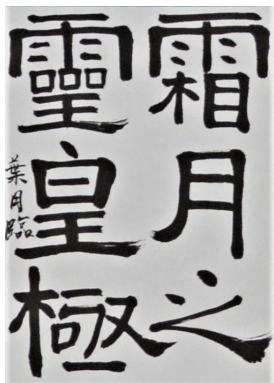 霜月之
靈皇極
葉月臨